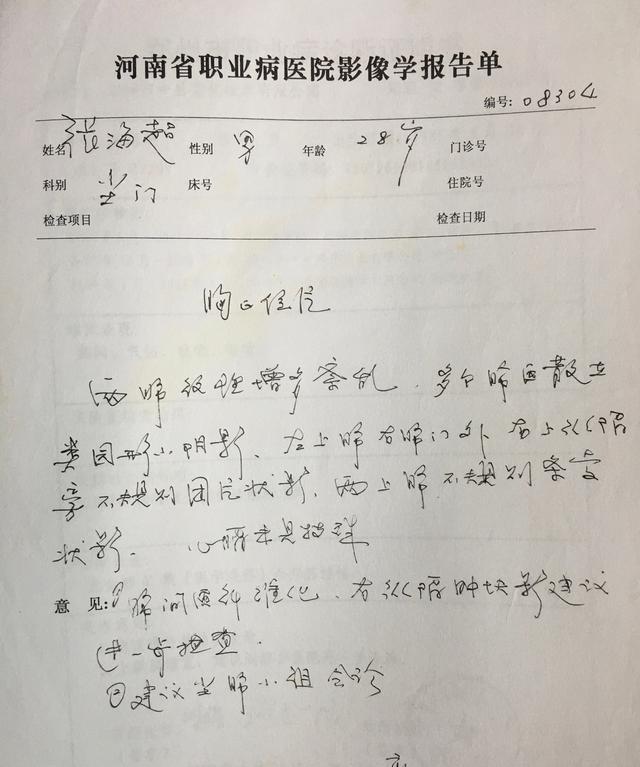 河南省职业病医院影像学报告单
编号: 08304
姓名 张海超 性别 男 年龄 28岁 门诊号
科别 尘门 床号 住院号
检查项目 检查日期
胸正位片
两肺纹理增多紊乱、多个肺区散在
类园形小阴影、左上肺右肺门外右上纵隔
旁不规则团片状影、两上肺不规则条索
状影. 心膈未见特殊
意见:① 肺间质纤维化、右纵隔肿块影建议
进一步检查.
②建议尘肺小组会诊